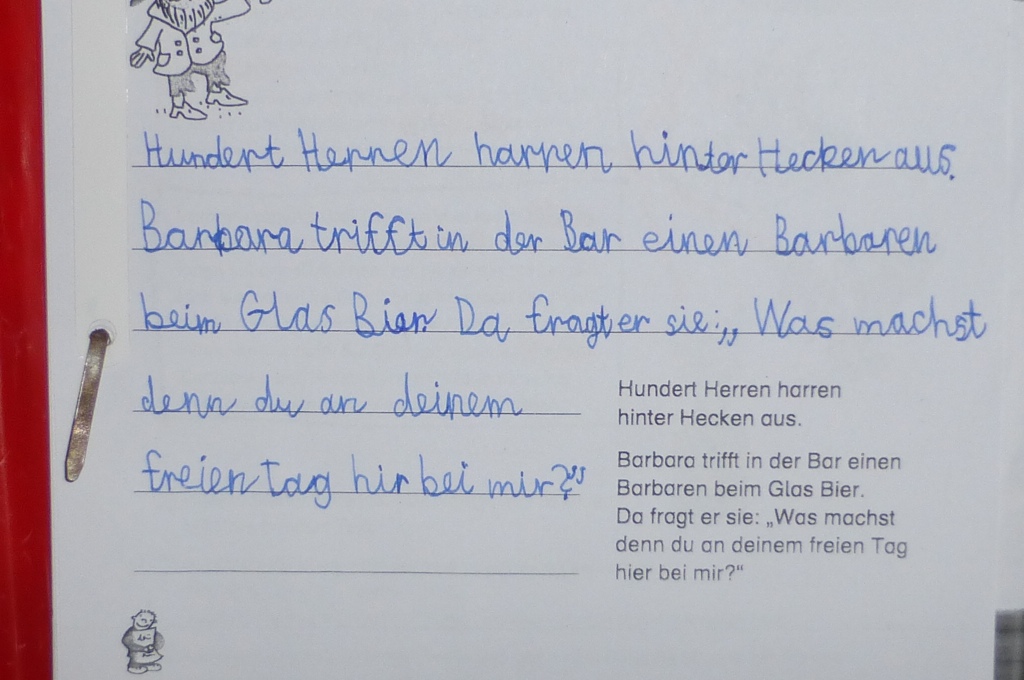 Hundert Herren harren hinter Hecken aus.
Barbara trifft in der Bar einen Barbaren
beim Glas Bier. Da fragt er sie: „Was machst
denn du an deinem
freien Tag hir bei mir?"
Hundert Herren harren
hinter Hecken aus.
Barbara trifft in der Bar einen
Barbaren beim Glas Bier.
Da fragt er sie: „Was machst
denn du an deinem freien Tag
hier bei mir?“